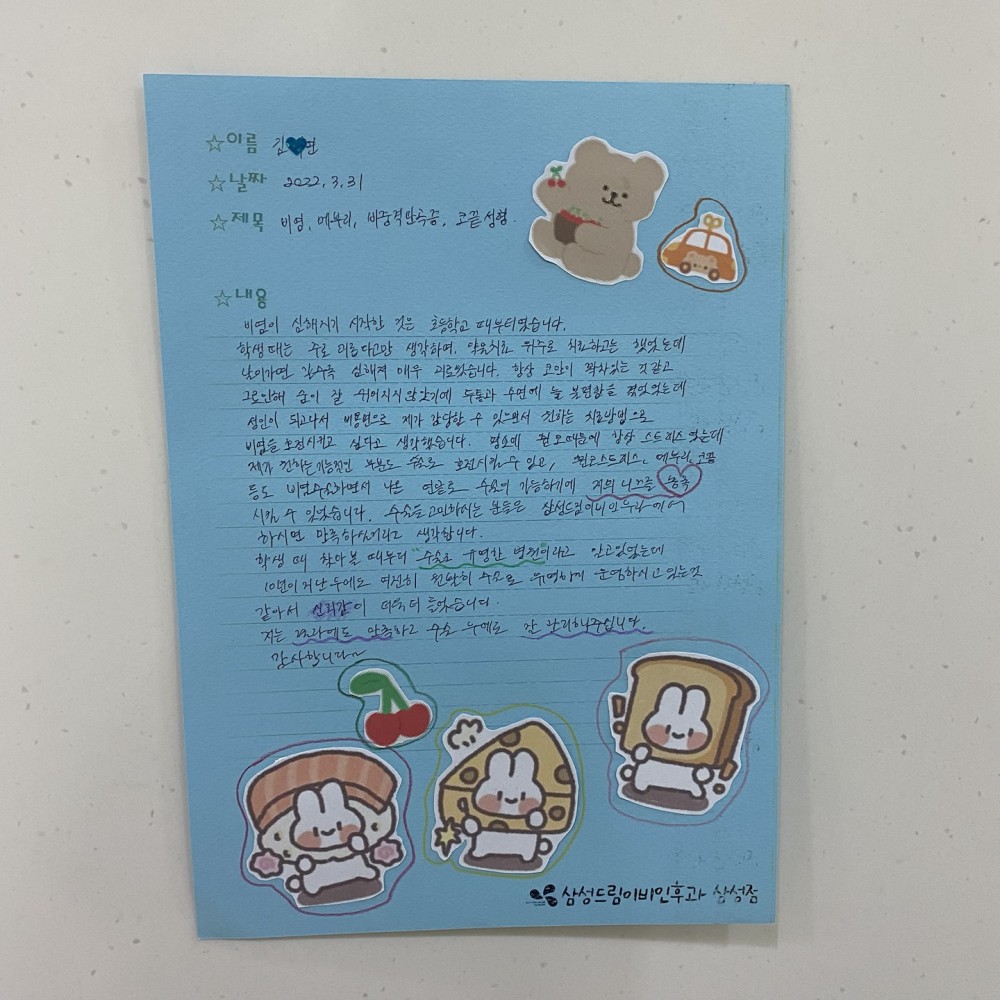 ☆이름 김♥연
☆날짜 2022. 3. 31
☆제목 비염, 매부리, 비중격만곡증, 코끝성형.
☆내용
비염이 심해지기 시작한 것은 초등학교 때부터였습니다.
학생때는 주로 괴롭다고만 생각하며, 약물치료 위주로 치료하고는 했었는데
날이가면 갈수록 심해져 매우 괴로웠습니다. 항상 코안이 꽉차있는 것 같고
그로인해 숨이 잘 쉬어지지 않았기에 두통과 수면에 늘 불편함을 겪었었는데
성인이 되고나서 비용면으로 제가 감당할 수 있으면서 원하는 치료방법으로
비염을 호전시키고 싶다고 생각했습니다. 평소에 외모때문에 항상 스트레스였는데
제가 원하는 기능적인 부분도 수술로 호전시킬 수 있고, 외모스트레스, 매부리, 코끝
등도 비염수술하면서 나온 연골로 수술이 가능하기에 저의 니즈를 충족
시킬 수 있었습니다. 수술을 고민하시는 분들은 삼성드림이비인후과에서
하시면 만족하실거라고 생각합니다.
학생 때 찾아볼 때부터 "수술로 유명한 병원"이라고 알고있었는데
10년이 지난 후에도 여전히 원활히 수술로 유명하게 운영하시고 있는것
같아서 신뢰감이 더욱더 들었습니다.
저는 결과에도 만족하고 수술 후에도 잘 관리해주십니다.
감사합니다~
삼성드림이비인후과 삼성점